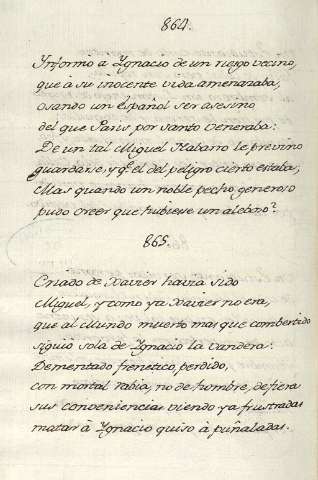 864.
Informò a Ygnacio de un riesgo vecino,
que à su inocente vida amenazaba,
osando un Español ser asesino
del que Paris por Santo veneraba:
De un tal Miguel Nabarro le previno
guardarse, y q.e el del peligro cierto estaba,
Mas quando un noble pecho generoso
pudo creer que hubiese un alebno?
865.
Criado de Xavier havia sido
Miguel, y como ya Xavier no era,
que al Mundo muerto mas que combertido
siguiò sola de Ygnacio la vandera:
Dementado frenetico, perdido,
con mortal rabia, no de hombre, de fiera
sus conveniencias viendo ya frustradas
matar à Ygnacio quiso à puñaladas.